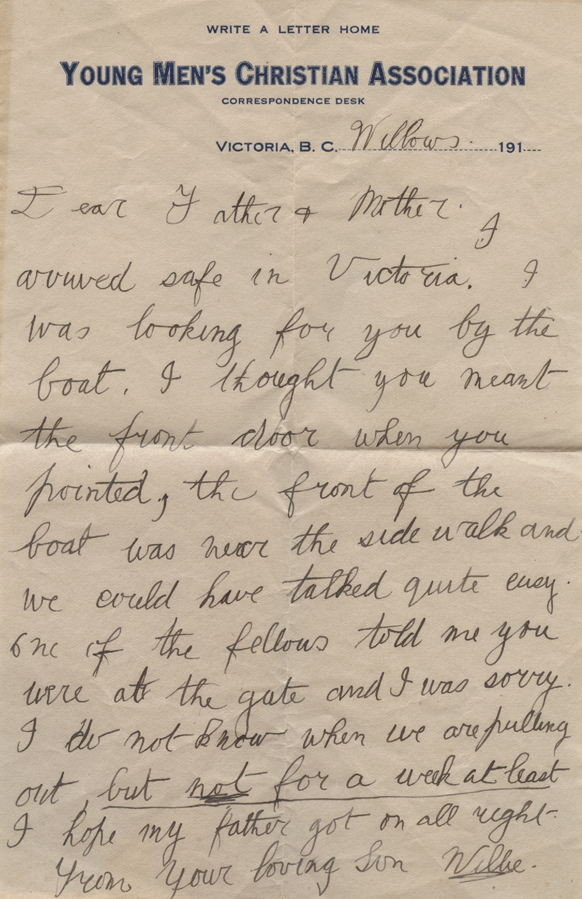 WRITE A LETTER HOME
YOUNG MEN'S CHRISTIAN ASSOCIATION
CORRESPONDENCE DESK
VICTORIA, B. C. Willows. 191
Dear Father & Mother. I
arrived safe in Victoria. I
was looking for you by the
boat. I thought you meant
the front door when you
pointed, the front of the
boat was near the side walk and
we could have talked quite easy.
one of the fellows told me you
were at the gate and I was sorry.
I do not know when we are pulling
out, but not for a week at least
I hope my father got on all right.
From Your loving Son Willie.